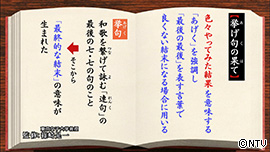 【挙句の果て】
色々やってみた結果を意味する
「あげく」を強調し
「最後の最後」を表す言葉で
良くない結末になる場合に用いる
挙句
和歌を繋げて詠む「連句」の
最後の七・七の句のこと
そこから
「最終的な結末」の意味が
生まれた
©NTV